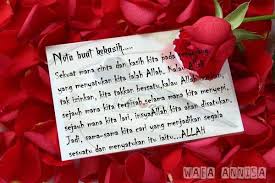 Nota buat kekasih.....
Sekuat mana cinta dan kasih kita pada
yang menyatukan kita ialah Allah. Kalau Allah
tak izinkan, kita takkan bersatu,kalau
sejauh mana kita terpisah,selama mana kita menyepi,
sejauh mana kita lari, insyaAllah kita akan disatukan.
Jadi, sama-sama kita cari yang menjadikan segala
sesuatu dan menyatukan itu iaitu...ALLAH
WAFA ANNISA